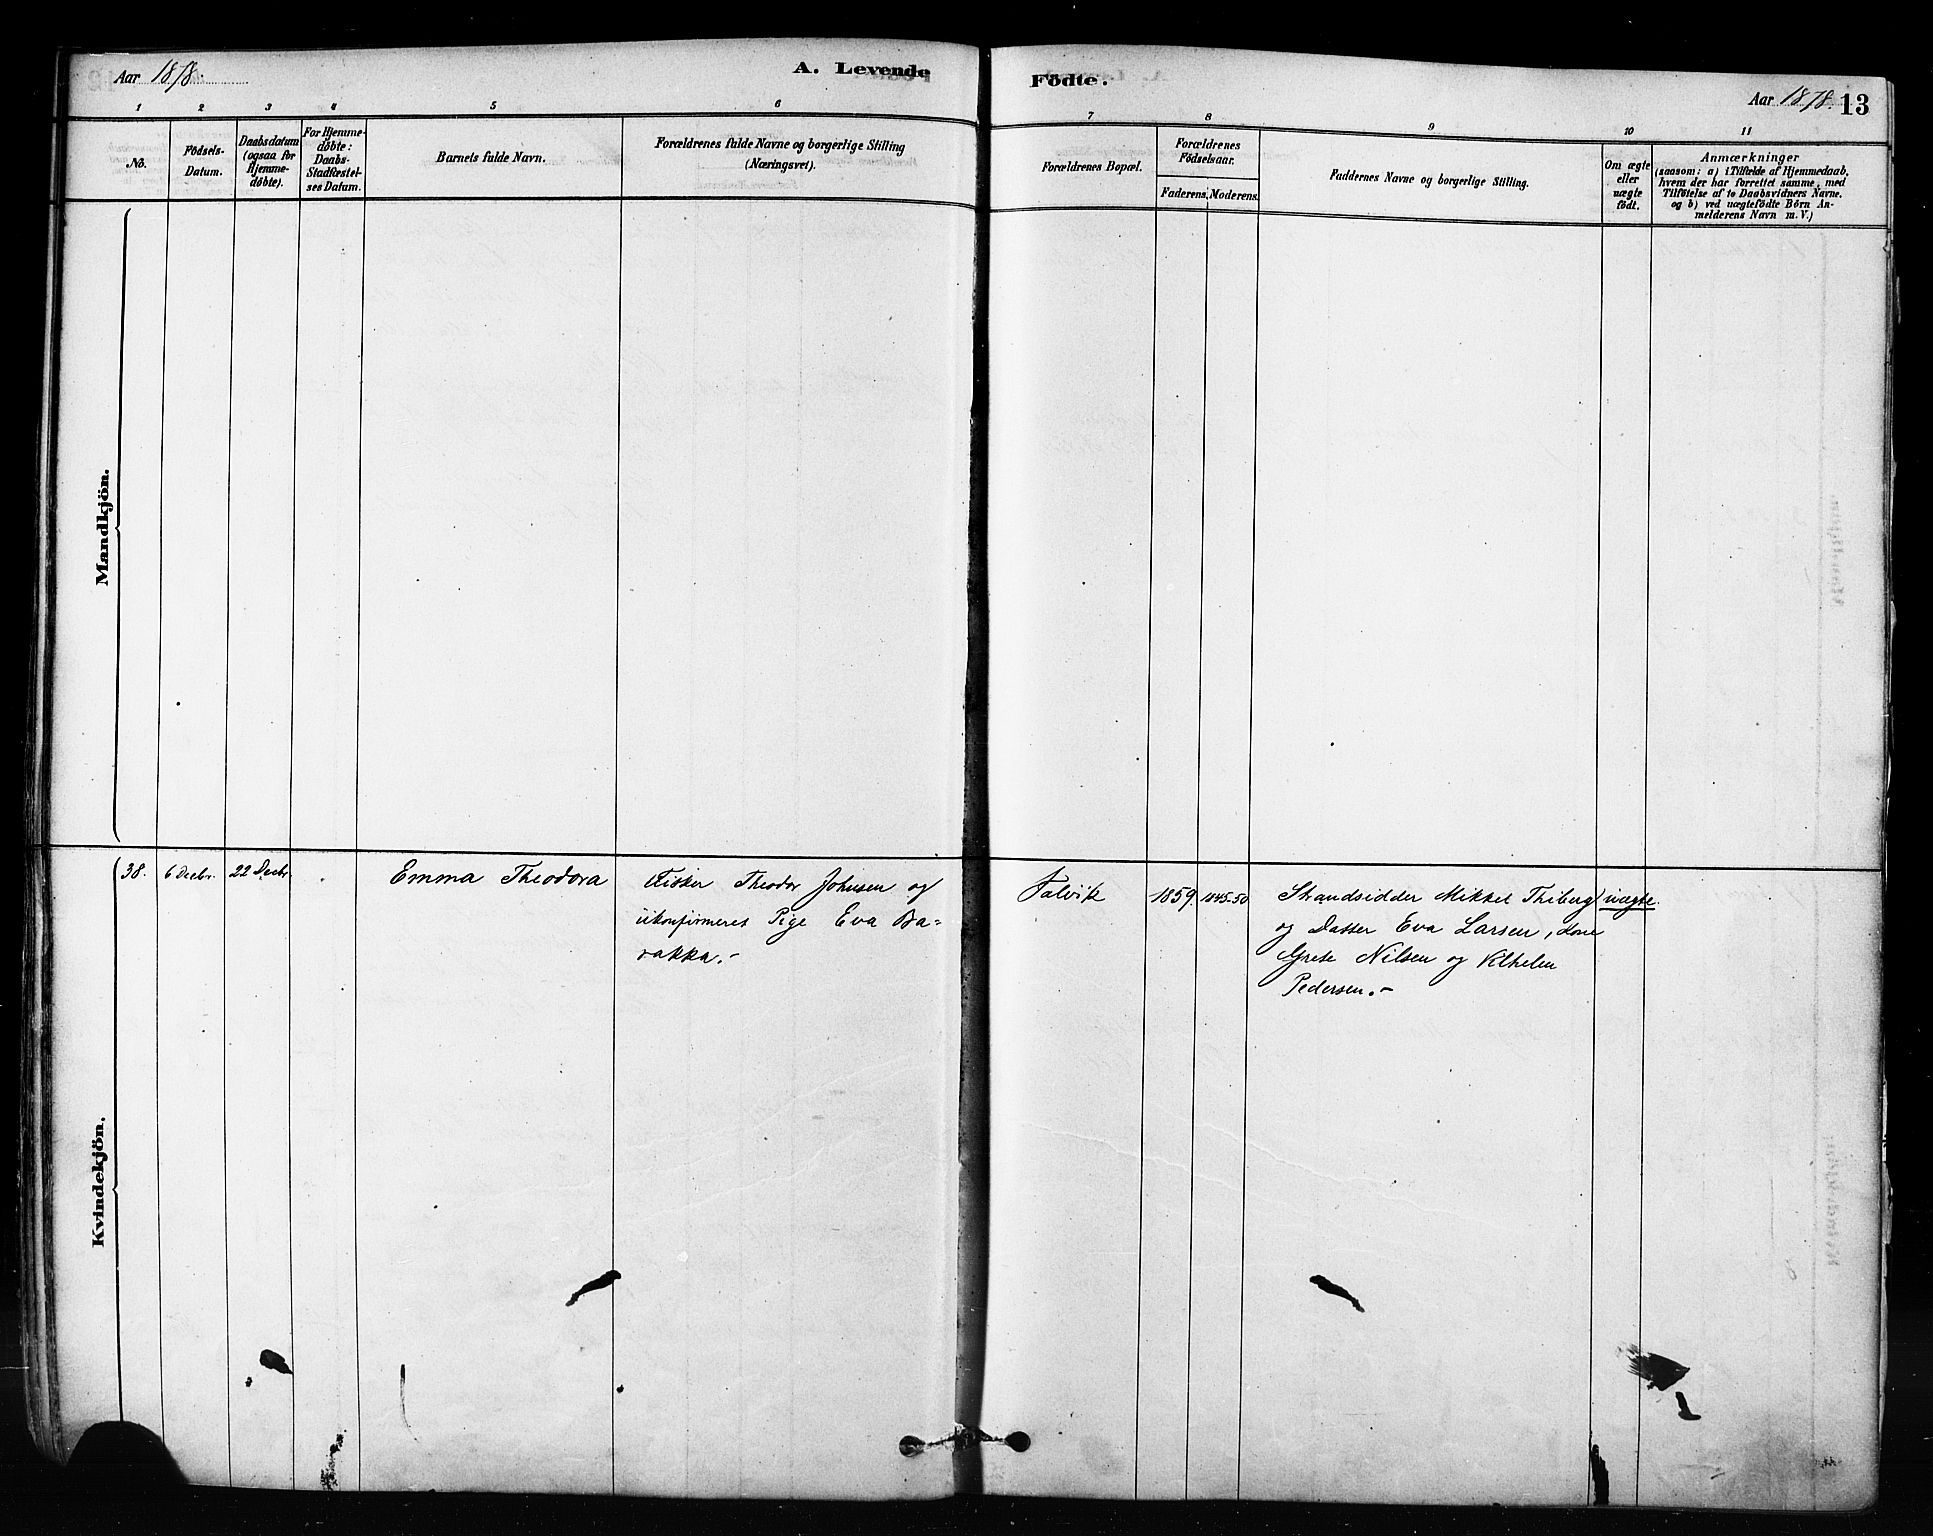 Aar 1878.
A. Levende
Födte.
Aar 1878.
13
1
2
3
4
5
6
7
8
9
10
11
No.
Födsels-
Datum.
Daabsdatum
(ogsaa for
Hjemme-
døbte).
For Hjemme-
døbte:
Daabs-
Stadfæstel-
ses Datum.
Barnets fulde Navn.
Forældrenes fulde Navne og borgerlige Stilling
(Næringsvei).
Forældrenes Bopæl.
Forældrenes
Födselsaar.
Faderens.
Moderens.
Faddernes Navne og borgerlige Stilling.
Om ægte
eller
uægte
födt.
Anmærkninger
(saasom: a) i Tilfælde af Hjemmedaab,
hvem der har forrettet samme, med
Tilföielse af to Daabsvidners Navne,
og b) ved uægtefödte Börn An-
melderens Navn m. V.)
Mandkjön.
Kvindekjön.
38.
6 Decbr.
22 Decbr.
Emma Theodora
Fisker Theodor Johnsen og
ukonfirmeret Pige Eva Ba=
rakka.-
Talvik
1859.
1845-50
Strandsidder Mikkel Thiberg
og Datter Eva Larsen, Kone
Grete Nilsen og
Pedersen.-
uægte.